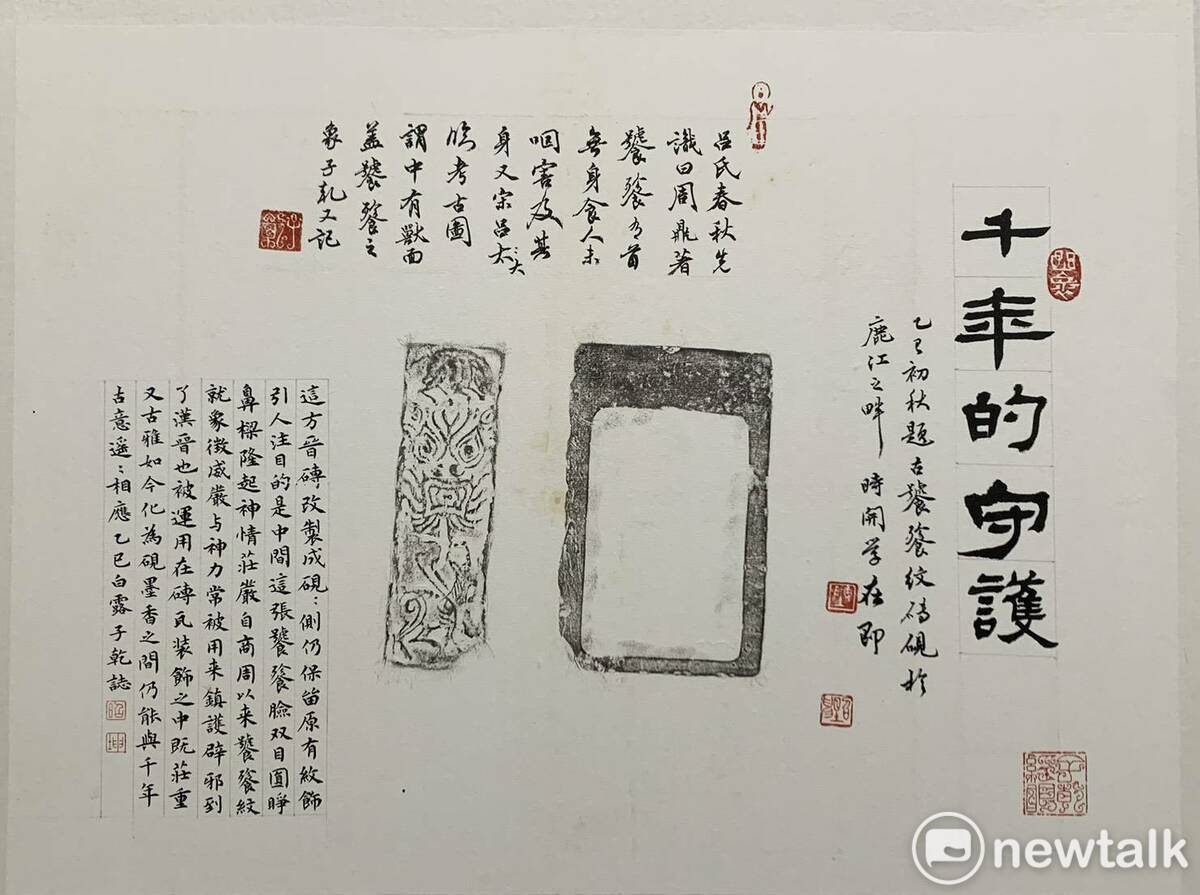 千年的守護
乙巳初秋題古饕餮紋磚硯於
鹿江之畔 時開学在即
呂氏春秋先
識曰周鼎著
饕餮有首
無身食人未
咽害及其
身又宋呂太大
臨考古圖
謂中有獸面
蓋饕餮之
象子乾又記
這方晉磚改製成硯:側仍保留原有紋飾
引人注目的是中間這張饕餮臉双目圓睜
鼻樑隆起神情莊嚴自商周以来饕餮紋
就象徵威嚴与神力常被用来鎮護辟邪到
了漢晉也被運用在磚瓦装飾之中既莊重
又古雅如今化為硯墨香之間仍能與千年
古意遥:相應乙巳白露子乾誌
newtalk